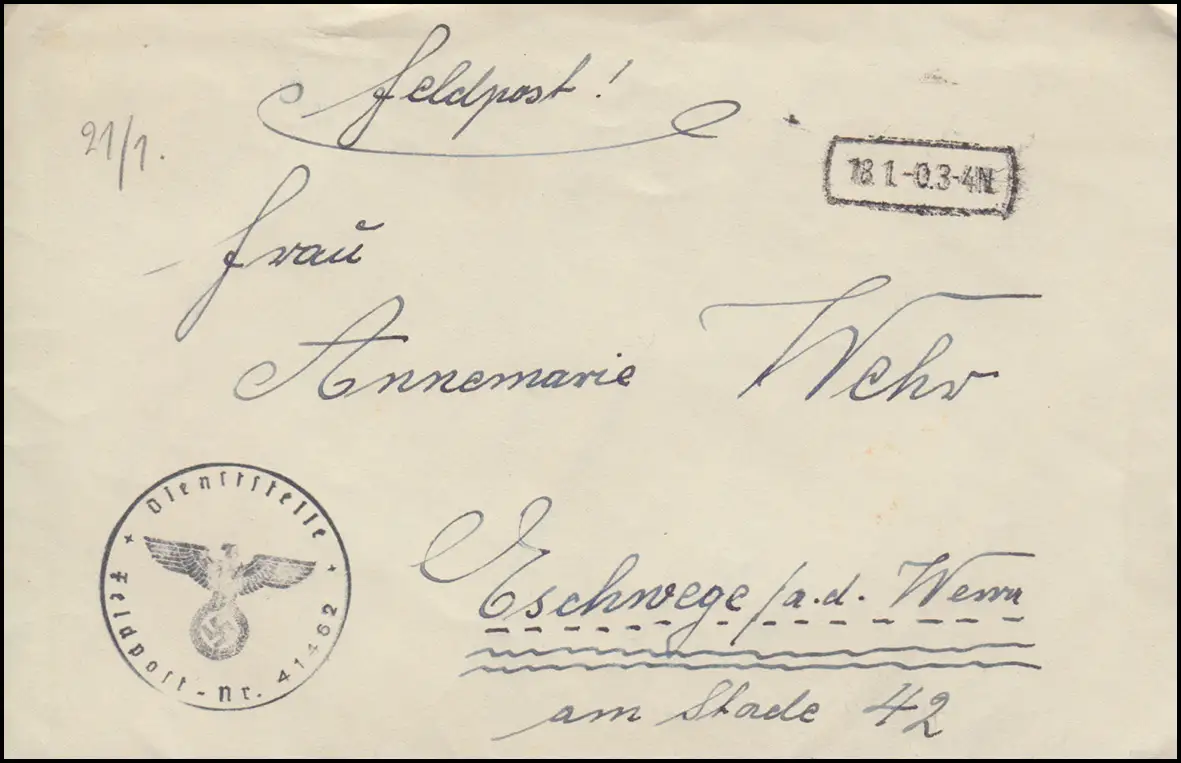 Feldpost!
21/1.
18 1.-0.3-4N
Frau
Annemarie Wehr
Dienststelle
Feldpost-Nr. 41462
Eschwege/a.d. Werra
am Stade 42